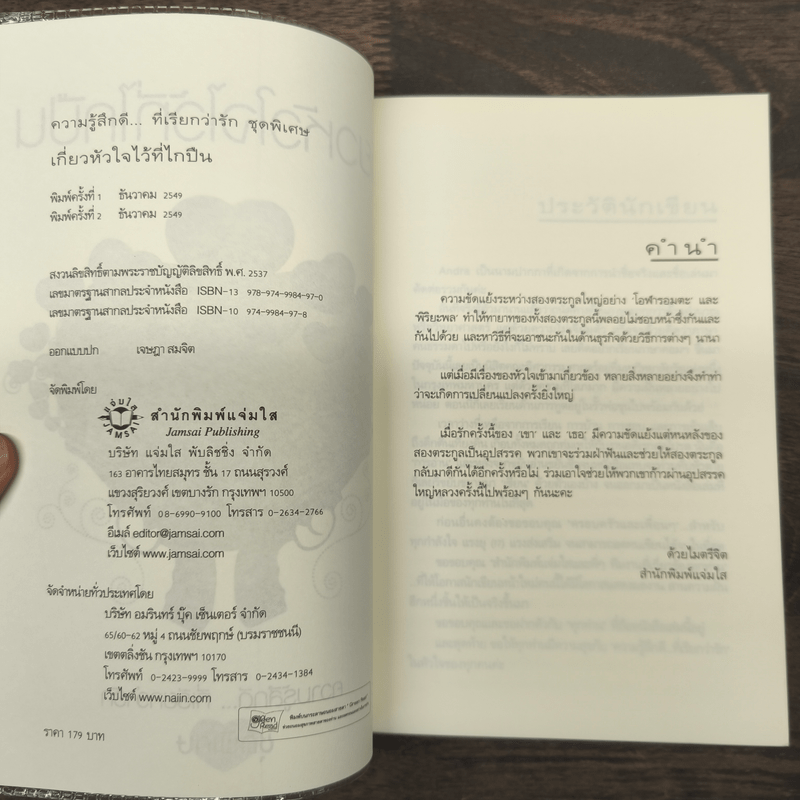 ความรู้สึกดี... ที่เรียกว่ารัก ชุดพิเศษ
เกี่ยวหัวใจไว้ที่ไกปืน
พิมพ์ครั้งที่ 1 ธันวาคม 2549
พิมพ์ครั้งที่ 2 ธันวาคม 2549
สงวนลิขสิทธิ์ตามพระราชบัญญัติลิขสิทธิ์ พ.ศ. 2537
เลขมาตรฐานสากลประจำหนังสือ ISBN-13 978-974-9984-97-0
เลขมาตรฐานสากลประจำหนังสือ ISBN-10 974-9984-97-8
ออกแบบปก เจษฎา สมจิต
จัดพิมพ์โดย
แจ่มใส
JAMSAI
สำนักพิมพ์แจ่มใส
Jamsai Publishing
บริษัท แจ่มใส พับลิชชิ่ง จำกัด
163 อาคารไทยสมุทร ชั้น 17 ถนนสุรวงศ์
แขวงสุริยวงศ์ เขตบางรัก กรุงเทพฯ 10500
โทรศัพท์ 08-6990-9100 โทรสาร 0-2634-2766
อีเมล์ editor@jamsai.com
เว็บไซต์ www.jamsai.com
จัดจำหน่ายทั่วประเทศโดย
บริษัท อมรินทร์ บุ๊ค เซ็นเตอร์ จำกัด
65/60-62 หมู่ 4 ถนนชัยพฤกษ์ (บรมราชชนนี)
เขตตลิ่งชัน กรุงเทพฯ 10170
โทรศัพท์ 0-2423-9999 โทรสาร 0-2434-1384
เว็บไซต์ www.naiin.com
Green Read
ราคา 179 บาท
คำนำ
ความขัดแย้งระหว่างสองตระกูลใหญ่อย่าง 'โอฬารอมตะ' และ
'พิริยะพล' ทำให้ทายาทของทั้งสองตระกูลนี้พลอยไม่ชอบหน้าซึ่งกันและ
กันไปด้วย และหาวิธีที่จะเอาชนะกันในด้านธุรกิจด้วยวิธีการต่างๆ นานา
แต่เมื่อมีเรื่องของหัวใจเข้ามาเกี่ยวข้อง หลายสิ่งหลายอย่างจึงทำท่า
ว่าจะเกิดการเปลี่ยนแปลงครั้งยิ่งใหญ่
เมื่อรักครั้งนี้ของ 'เขา' และ 'เธอ' มีความขัดแย้งแต่หนหลังของ
สองตระกูลเป็นอุปสรรค พวกเขาจะร่วมฝ่าฟันและช่วยให้สองตระกูล
กลับมาดีกันได้อีกครั้งหรือไม่ ร่วมเอาใจช่วยให้พวกเขาก้าวผ่านอุปสรรค
ใหญ่หลวงครั้งนี้ไปพร้อมๆ กันนะคะ
ด้วยไมตรีจิต
สำนักพิมพ์แจ่มใส